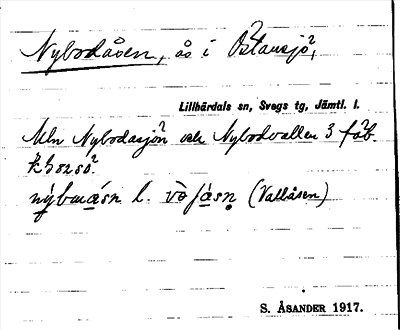 Nybodåsen, ås i Östansjö,
Lillhärdals sn, Svegs tg, Jämtl. l.
Mln Nybodasjön och Nybodvallen 3 fäb.
l. (Vallåsen)
S. ÅSANDER 1917.